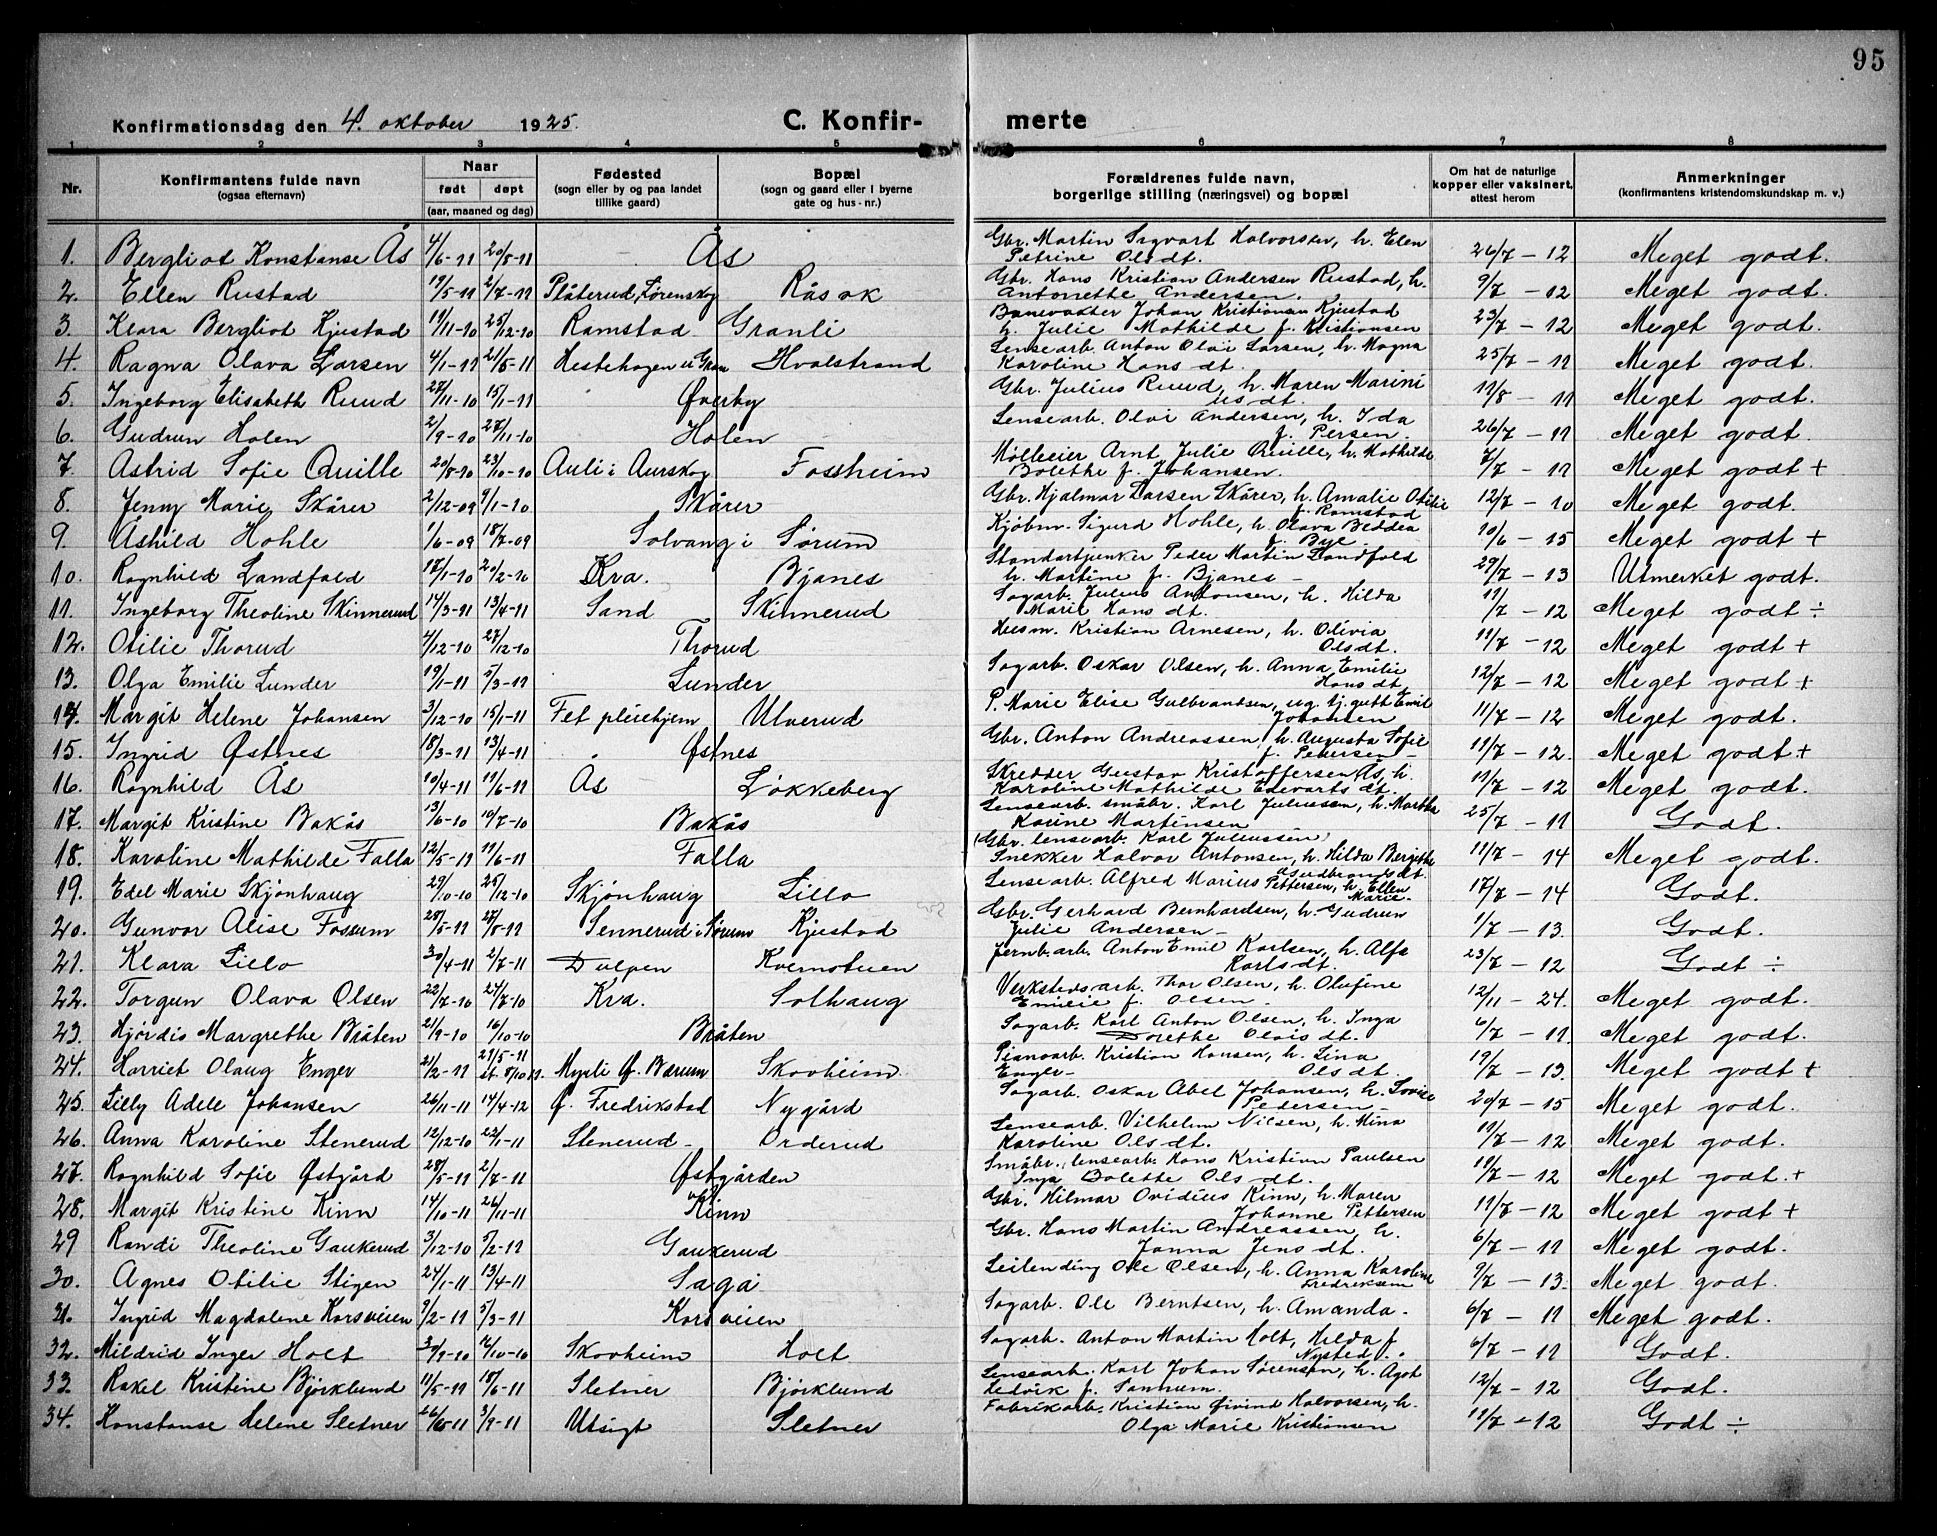 95
Konfirmationsdag den 4. oktober 1925. C. Konfirmerte
1 2 3 4 5 6 7 8
Nr. Konfirmantens fulde navn (ogsaa efternavn) Naar født døpt (aar, maaned og dag) Fødested (sogn eller by og paa landet tillike gaard) Bopæl (sogn og gaard eller i byerne gate og hus-nr.) Forældrenes fulde navn, borgerlige stilling (næringsvei) og bopæl Om hat de naturlige kopper eller vaksinert, attest herom Anmerkninger (konfirmantens kristendomskundskap m. v.)
1. Bergliot Konstanse Ås 4/6-11 20/8-11 Ås Gbr. Martin Sigvart Halvorsen, h. Elen Petrine Olsdt. 26/7-12 Meget godt.
2. Ellen Rustad 19/5-11 2/7-11 Plåterud, Lørenskog Råsok Gbr. Hans Kristian Andersen Rustad, h. Antonette Andersen. 9/7-12 Meget godt.
3. Klara Bergliot Kjustad 19/11-10 25/12-10 Ramstad Granli Banevogter Johan Kristiansen Kjustad h. Julie Mathilde f. Kristiansen 23/7-12 Meget godt.
4. Ragna Olava Larsen 4/1-11 21/5-11 Hestehagen u. Gran Hvalstrand Lensearb. Anton Olai Larsen, h. Magna Karoline Hansdt. 25/7-11 Meget godt.
5. Ingeborg Elisabeth Ruud 27/11-10 15/1-11 Øverby Gbr. Julius Ruud, h. Maren Marini 11/8-11 Meget godt.
6. Gudrun Holen 2/9-10 27/11-10 Holen Lensearb. Olai Andersen, h. Ida f. Persen. 26/7-11 Meget godt.
7. Astrid Sofie Quille 20/8-10 23/10-10 Auli i Aurskog Fossheim Mølleeier Arnt Julie Quille, h. Mathilde Bolethe f. Johansen. 7/7-11 Meget godt +
8. Jenny Marie Skårer 2/12-09 9/1-10 Skårer Gbr. Hjalmar Larsen Skårer, h. Amalie Otilie f. Ramstad 12/7-10 Meget godt.
9. Åshild Hohle 1/6-09 18/7-09 Solvang i Sørum Kjøbm. Sigurd Hohle, h. Olava Beddea f. Bye 10/6-15 Meget godt +
10. Ragnhild Landfald 17/1-10 20/2-10 Kra. Bjanes Standartjunker Peder Martin Landfald h. Martine f. Bjanes - 29/7-13 Utmerket godt.
11. Ingeborg Theoline Skinnerud 14/3-11 13/4-11 Sand Skinnerud Sagarb. Julius Antonsen, h. Hilda Marie Hansdt. 19/7-12 Meget godt ÷
12. Otilie Thorud 4/12-10 27/12-10 Thorud Husm. Kristian Arnesen, h. Olivia Olsdt. 11/7-12 Meget godt +
13. Olga Emilie Lunder 19/1-11 5/3-11 Lunder Sagarb. Oskar Olsen, h. Anna Emilie Hansdt. 12/7-12 Meget godt +
14. Margit Helene Johansen 3/12-10 15/1-11 Fet pleiehjem Ulverud P. Marie Elise Gulbrantsen, ug. tj. gutt Emil Johansen 11/7-12 Meget godt.
15. Ingrid Østnes 18/3-11 13/4-11 Østnes Gbr. Anton Andreassen, h. Augusta Sofie f. Petersen - 11/7-12. Meget godt +
16. Ragnhild Ås 10/4-11 11/6-11 Ås Løkkeberg Skredder Gustav Kristoffersen Ås, h. Karoline Mathilde Edvartsdt. 11/7-12 Meget godt.
17. Margit Kristine Bakås 13/6-10 10/7-10 Bakås Lensearb. småbr. Karl Juliussen, h. Martha Karine Martinsen 25/7-11 Godt.
18. Karoline Mathilde Falla 12/5-11 11/6-11 Falla (Gbr. lensearb. Karl Juliussen) Snekker Halvor Antonsen, h. Hilda Bergithe Asudbrandsdt. 11/7-14 Meget godt.
19. Edel Marie Skjønhaug 29/10-10 25/12-10 Skjønhaug Lillo Lensearb. Alfred Marius Pettersen, h. Ellen Marie. 17/7-14 Godt.
20. Gunvor Alise Fossum 28/5-11 27/8-11 Sennerud i Sørum Kjustad Gbr. Gerhard Bernhardsen, h. Gudrun Julie Andersen - 1/7-13. Godt.
21. Klara Lillo 30/4-11 2/7-11 Dulpen Kvernstuen Jernb.arb. Anton Emil Karlsen, h. Alfa Karlsdt. 23/7-12 Godt ÷
22. Torgun Olava Olsen 22/7-10 24/7-10 Kra. Solhaug Verkstedsarb. Thor Olsen, h. Olufine Emilie f. Olsen. 12/11-24. Meget godt.
23. Hjørdis Margrethe Bråten 21/9-10 16/10-10 Bråten Sagarb. Karl Anton Olsen, h. Inga Dorethe Olaisdt. 6/7-11. Meget godt.
24. Harriet Olaug Enger 21/2-11 21/5-11 st. 8/10 11. Myrli Ø. Bærum Skovheim. Pianoarb. Kristian Hansen, h. Lina Enger - Olsdt. 19/7-13. Meget godt +
25. Lilly Adele Johansen 26/11-11 14/4-12 Ø. Fredrikstad Nygård Sagarb. Oskar Abel Johansen, h. Lovise Pedersen - 20/7-15 Meget godt.
26. Anna Karoline Stenerud 12/12-10 22/1-11 Stenerud - Orderud Lensearb. Vilhelm Nilsen, h. Mina Karoline Olsdt. 11/7-12 Meget godt.
27. Ragnhild Sofie Østgård 28/5-11 2/7-11 Østgården Småbr., lensearb. Hans Kristian Paulsen Inga Bolette Olsdt. 19/7-12 Meget godt. +
28. Margit Kristine Kinn 14/10-11 26/11-11 Kinn Gbr. Hilmar Ovidius Kinn, h. Maren Johanne Pettersen 11/7-12 Meget godt +
29 Randi Theoline Gaukerud 3/12-10 5/2-11 Gaukerud Gbr. Hans Martin Andreassen, h. Janna Jensdt. 6/7-11 Meget godt.
30. Agnes Otilie Stigen 24/1-11 13/4-11 Saga Leilending Ole Olsen, h. Anna Karoline Fredriksen 9/7-13. Meget godt.
31. Ingrid Magdalene Korsveien 9/2-11 5/3-11 Korsveien Sagarb. Ole Berntsen, h. Amanda - 6/7-11 Meget godt.
32. Mildrid Inger Holt 30/9-10 16/10-10 Skovheim Holt Sagarb. Anton Martin Holt, Hilda f. Nysted. 6/7-11 Godt.
33. Rakel Kristine Bjørklund 11/5-11 18/6-11 Sletner Bjørklund Lensearb. Karl Johan Sørensen, h. Agot Hedvik f. Sannum. 12/7-12 Godt.
34. Konstanse Helene Sletner 26/6-11 3/9-11 Utsigt Sletner Fabrikarb. Kristian Øivind Halvorsen, h. Olga Marie Kristiansen 11/7-12 Godt ÷